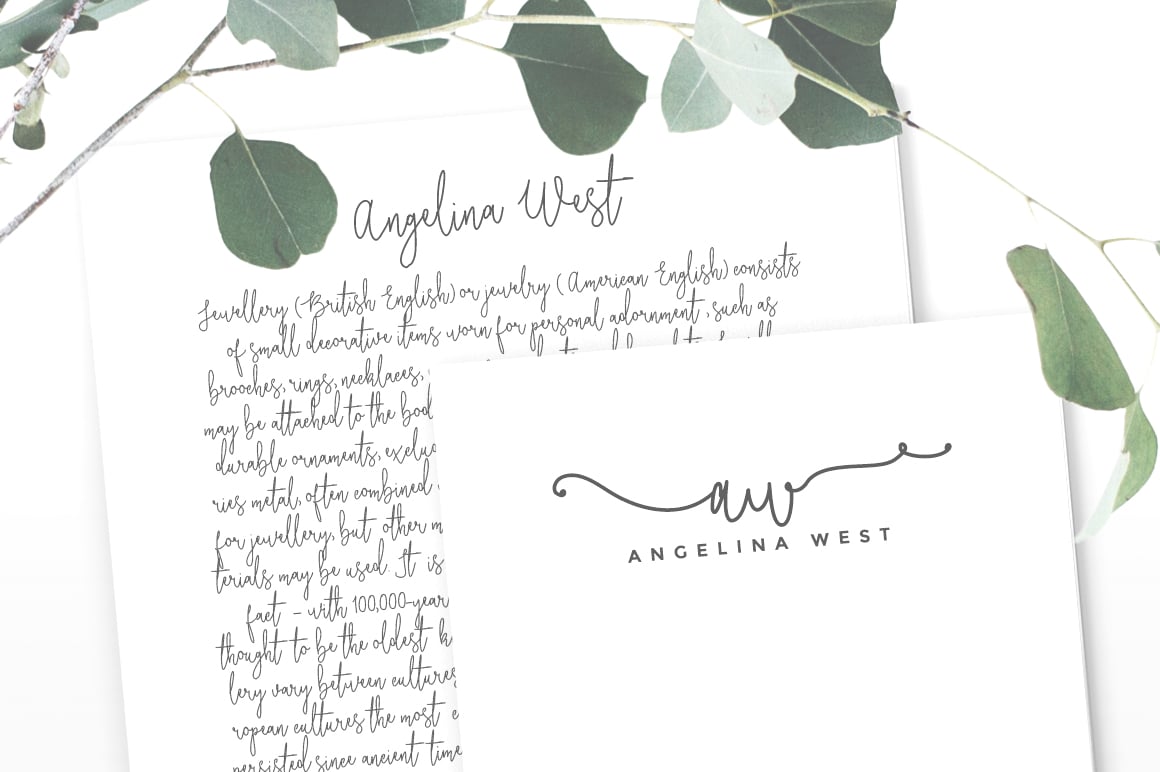 Angelina West
Jewellery (British English) or jewelry (American English) consists
of small decorative items worn for personal adornment, such as
brooches, rings, necklaces,
may be attached to the bod
durable ornaments, exclud
ries metal, often combined
for jewellery, but other m
terials may be used. It is
fact - with 100,000-year
thought to be the oldest k
lery vary between cultures
ropean cultures the most e
persisted since ancient time
aw
ANGELINA WEST